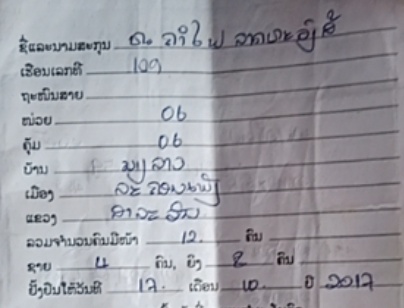 ຊື່ແລະນາມສະກຸນ ຄຳໃບ
ເຮືອນເລກທີ 109
ຖະໜົນສາຍ
ໜ່ວຍ 06
ຄຸ້ມ 06
ບ້ານ ລາວ
ເມືອງ ລະຄອນເພັງ
ແຂວງ ສາລະວັນ
ລວມຈຳນວນຄົນມີໜ້າ 12. ຄົນ
ຊາຍ 4 ຄົນ, ຍິງ 8 ຄົນ
ຍັ້ງຢືນໃຫ້ວັນທີ 17. ເດືອນ 10. ປີ 2017